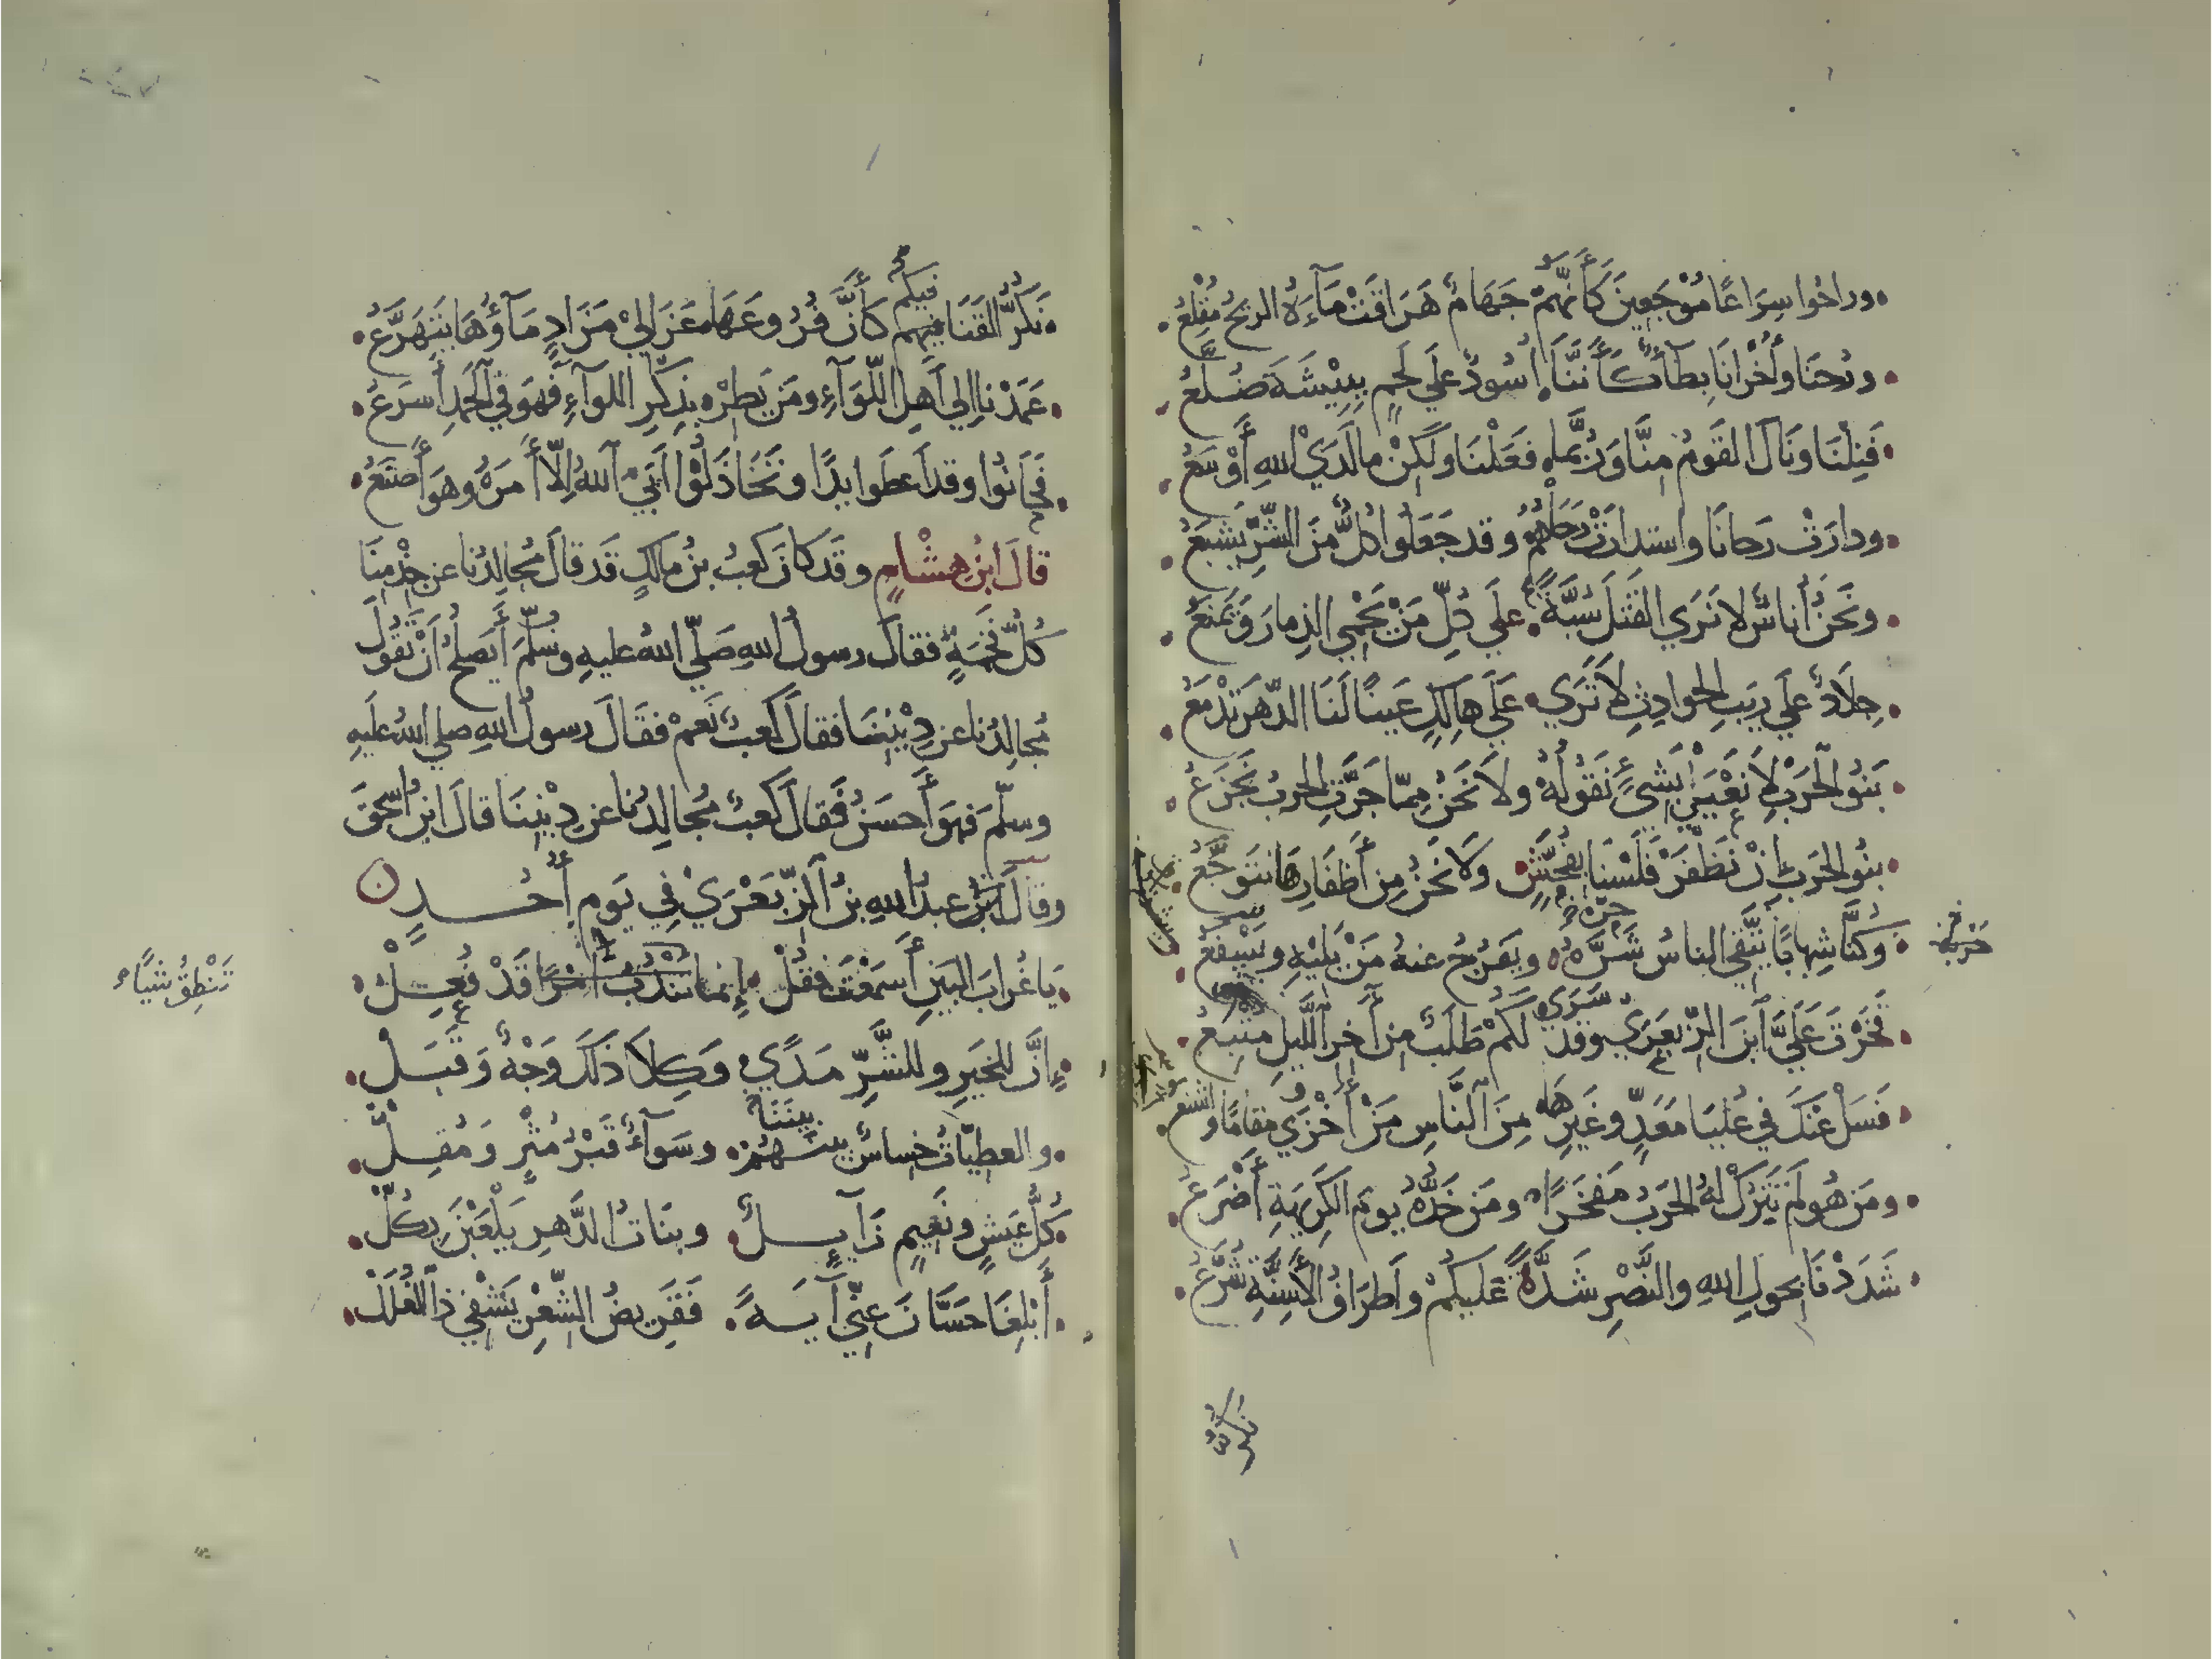 وراحُوا سِرَاعًا مُوْجَعِينَ كَأَنَّهُمْ جَهَامٌ هَرَاقَتْ مَآءَهُ الريحُ مُقْلِعُ
ورُحنَا وَأُخْرَانَا بِطَآءٌ كَأَنَّنَا أُسُودٌ عَلَي لَحمٍ بِبِيْشَةَ ضُلَّعُ
فَنِلْنَا ونَالَ القَومُ مِنَّا وَرُبَّمَا فَعَلْنَا ولَكِنْ مالَدَيْ اللهِ أَوْسَعُ
ودارَتْ رَحانَا واستدارَتْ رَحَاهُمُ وقد جَعَلُوا كُلٌّ مِّنَ الشَّرِّ يَشبَعُ
ونَحنُ أُناسٌ لانَرَي القَتْلَ سُبَّةً عَلَي كُلِّ مَنْ يَحْمِي الذِمارَ وَيَمْنَعُ
جِلَادٌ عَلَي رَيبِ الحوادِثِ لَا تَرَي عَلَي هالِكٍ عَينًا لَنَا الدَّهرَ تَدْمَعُ
بَنُو الحَرْبِ لَا نَعْيَي بِشَيءٍ نَقُولُهُ ولَا نَحْنُ مِمّا جَرَّتِ الحربُ نَجْزَعُ
بنُو الحَربِ إنْ نَظْفَرْ فَلَسْنَا بِفُحَّشٍ وَلَا نَحْنُ مِن أَظفَارِهَا نَتَوَجَّعُ
وَكُنَّا شِهابًا يَتَّقِي الناسُ حَرَّهُ شَرَّهُ ويَفْرُجُ عنهُ مَنْ يَلِيْهِ ويَسْفَعُ
فَخَرْتَ عَلَيَّ ابنَ الزِّبعرَي وقد سَرَي لَكُمْ طَلَبٌ مِن أَخِرِ اللَّيلِ مُتْبِعُ
فَسَلْ عَنْكَ في عُليَا مَعَدٍّ وغَيرِهَا مِنَ النَّاسِ مَنْ أَخْزَي مَقامًا وأشنعُ
ومَن هُو لَمْ تَتْرُكْ لَهُ الحَرْبُ مَفْخَرًا ومَن خَدُّهُ يومَ الكَرِيهَةِ أَضْرَعُ
شَدَدْنَا بِحولِ اللهِ والنَّصْرِ شَدَّةً عَلَيكُمْ وأَطرَافُ الأَسِنَّةِ شُرَّعُ
نَكُرُّ
فيكُم
نَكُرُّ القَنَا فِيهِم كَأَنَّ فُرُوعَهَا عَزَالِيْ مَزَادٍ مَآؤُهَا يَتَهَزَّعُ
عَمَدْنا إلي أَهلِ اللِّوَآءِ ومَن يَطِرْ بِذِكرِ اللوآءِ فَهوَ في الحَمدِ أَسرَعُ
فَخَانُوا وقد أَعطَوا يدًا وتَخَاذَلُوْا أَبَي اللهُ إِلَّا أَمرَهُ وهوَ أَصنَعُ
قالَ ابنُ هِشْامٍ وقَد كانَ كعبُ بنُ مالكٍ قَد قالَ مُجالِدُنا عن جِذْمِنَا
كُلَّ فَخمَةٍ فقالَ رسولُ اللهِ صَلّي اللهُ عليهِ وسَلَّمَ أَيَصلُحُ أَنْ تَقُولَ
مُجالِدُنا عن دِيْنِنَا فقالَ كَعبٌ نَعمْ فقَالَ رسولُ اللهِ صلي اللهُ عَلَيهِ
وسلَّمَ فهوَ أَحسَنُ فَقالَ كَعبٌ مُجالِدُنا عن دِيْنِنَا قالَ ابنُ اسحقَ
وقالَ عبدُ اللهِ بنُ الزِّبَعْرَيْ فِي يَومِ أُحُدٍ ن
يَاغُرابَ البَينِ أَسمَعْتَ فقُلْ إنما تَنْدُبُ أمْرًا قَدْ فُعِلْ
تَنْطِقُ شَيًّاء
إنَّ للخَيرِ وللشَّرِّ مَدًي وَكِلَا ذَلكَ وَجْهٌ وَقَبَلْ
والعطِيّاتُ خِساسٌ بينَهُمْ بينَنَا وسَوَآءٌ قَبْرُ مُثْرٍ وَمُقِلّْ
كُلُّ عَيشٍ ونَعِيمٍ زَآيِلٌ وبنَاتُ الدَّهرِ يَلْعَبْنَ بِكُلّْ
أَبْلِغَا حَسَّانَ عنِّي آيَةً فَقَرِيضُ الشِّعْرِ يَشْفِي ذا الغُلَلْ